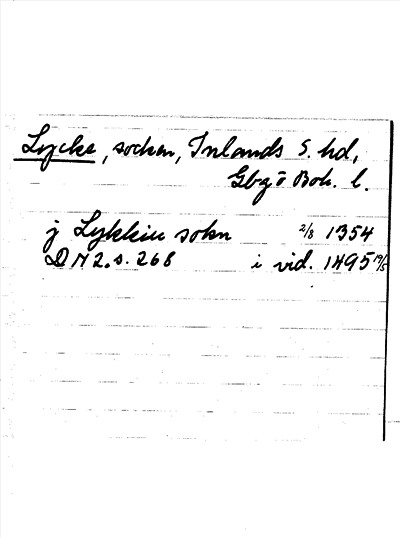 Lycke, socken, Inlands S. hd,
Gbg o Boh. l.
j Lykkiu sokn 2/8 1354
DN 2. s. 268 i vid. 1495 19/5